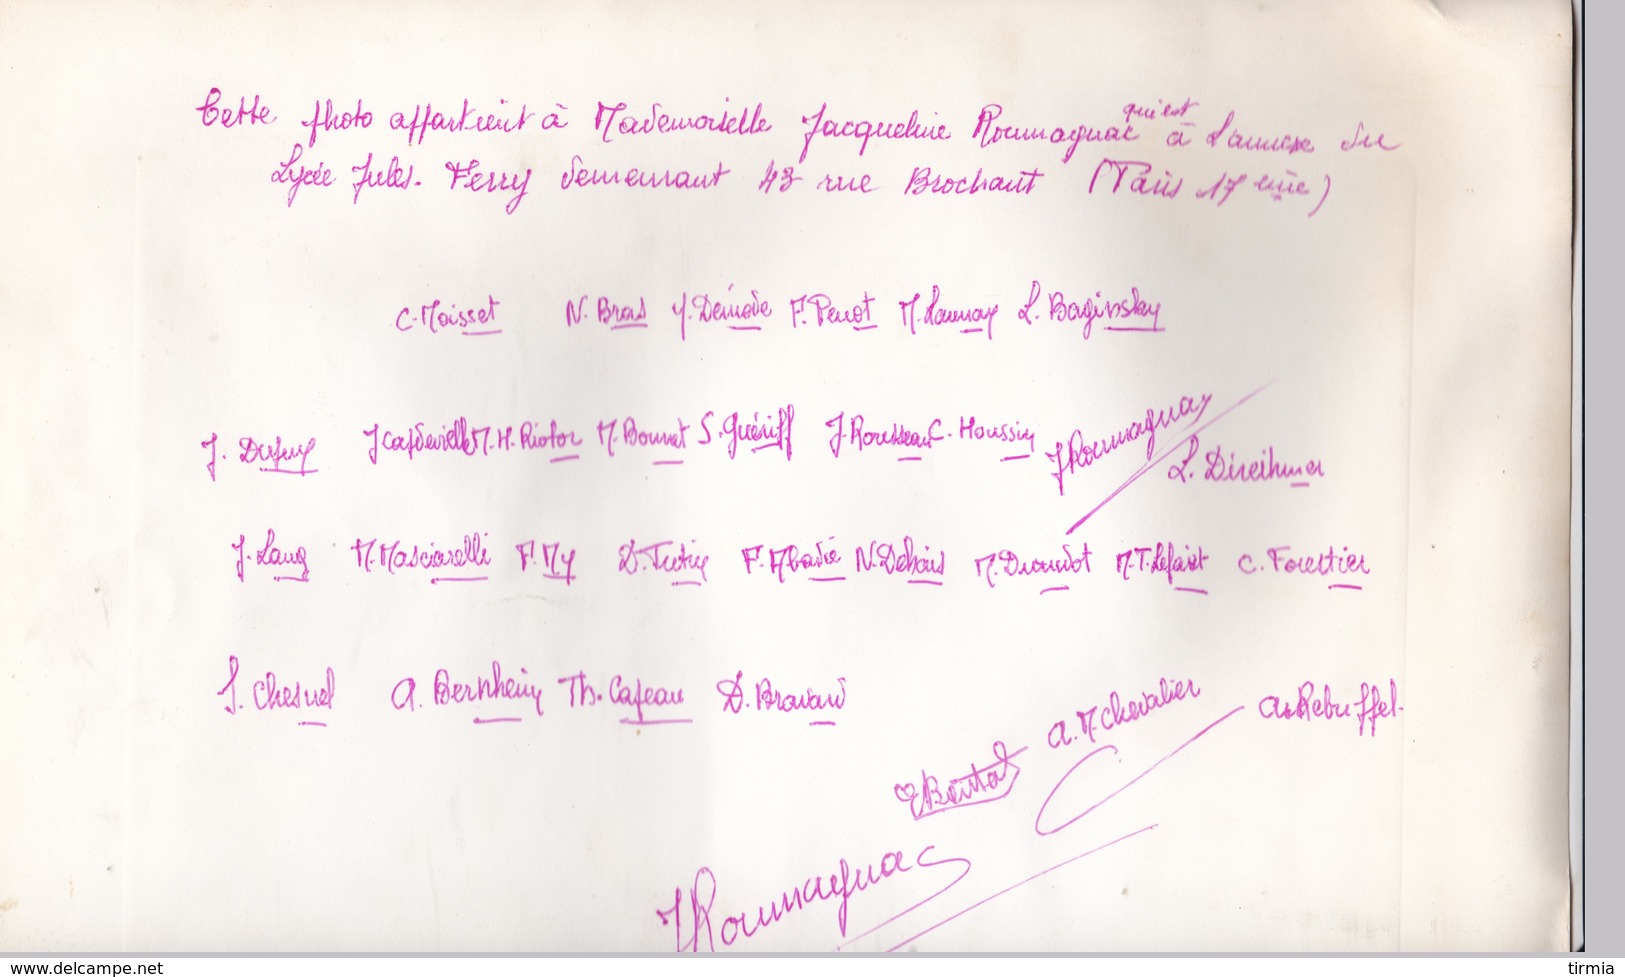 Cette photo appartient à Mademoiselle Jacqueline Roumagnac qui est à L'annexe du
Lycée Jules. Ferry demeurant 43 rue Brochant (Paris 17 ème)
C. Moisset N. Bras Y. Demode F. Penot M. Launay L. Baginsky
J. Dupuy J Capdevielle M. H. Riotor M. Bonnet S. Guériff J. Rousseau C. Houssin J Roumagnac
L. Direihmer
J. Lang M. Masciarelli F. My D. Tutin F. Abadie N. Dehais M. Drouadot M. T. Lefaist C. Forestier
S. Chesnel A. Bernheim Th. Capeau D. Bravard
A. M. Chevalier A. Rebuffel.
J Roumagnac
www.delcampe.net tirmia